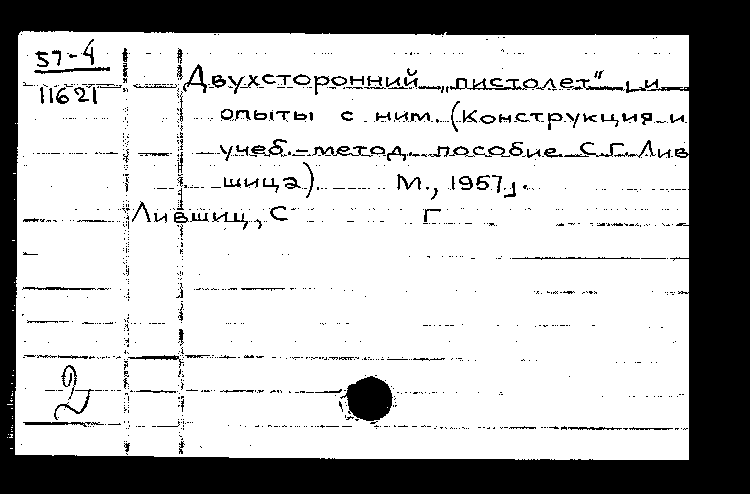 57-4
11621
Двухсторонний „пистолет" и
опыты с ним. (Конструкция и
учеб.-метод. пособие С.Г. Лив
шица). М., 1957.
Лившиц, С Г
2